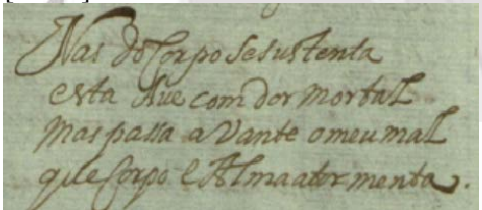 Nas do Corpo se sustenta
esta Aue com dor mortal
mas passa a vante o meu mal
que Corpo e Alma ator menta.